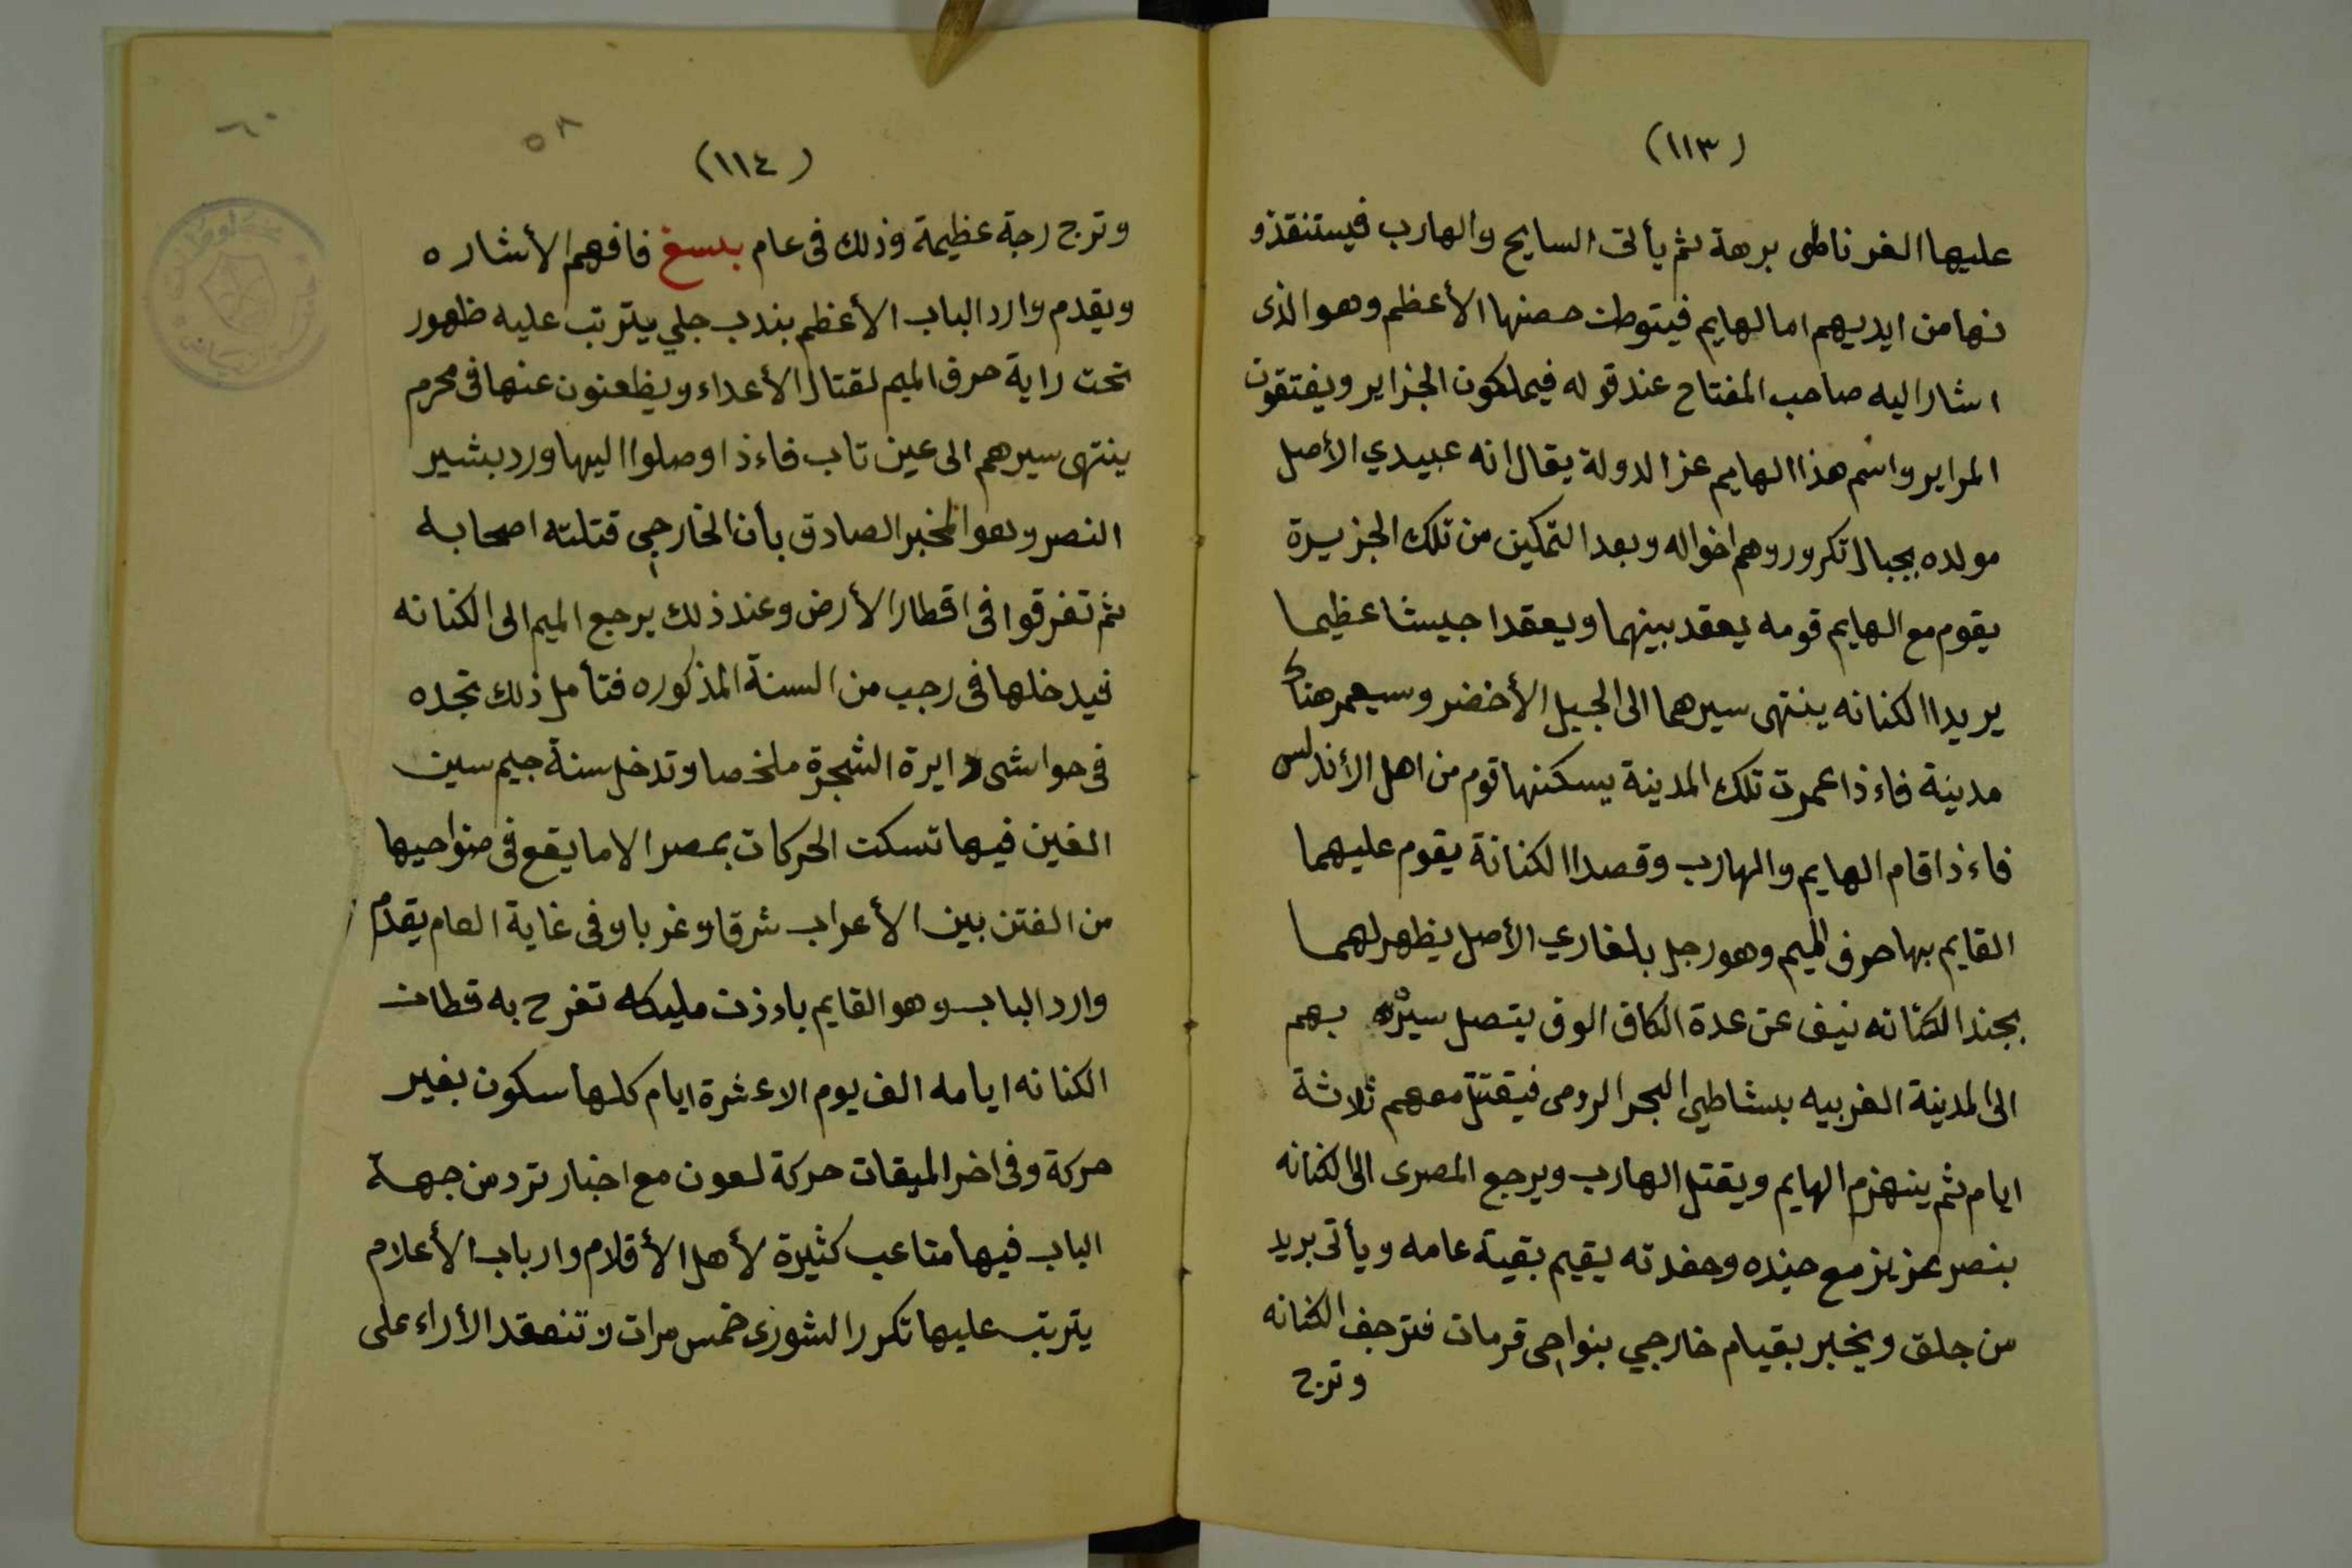 (١١٣)
عليها الغرناطى برهة ثم يأتى السايح والهارب فيستنقذو
نها من ايديهم اما الهايم فيتوطن حصنها الأعظم وهو الذى
اشار اليه صاحب المفتاح عند قوله فيملكون الجزاير ويفتقون
المراير واسم هذا الهايم عز الدولة يقال انه عبيدي الأصل
مولده بجبال تكرور وهم اخواله وبعد التمكين من تلك الجزيرة
يقوم مع الهايم قومه يعقد بينهما ويعقدا جيشا عظيما
يريدا الكنانه ينتهى سيرهما الى الجبل الأخضر وسيعمر هناك
مدينة فاءذا عمرت تلك المدينة يسكنها قوم من اهل الأندلس
فاءذا قام الهايم والهارب وقصدا الكنانة يقوم عليهما
القايم بها حرف الميم وهو رجل بلغاري الأصل يظهر لهما
بجند الكنانه نيف عن عدة الكاف الوف يتصل سيره بهم
الى المدينة الغربيه بشاطي البحر الرومى فيقتتل معهم ثلاثة
ايام ثم ينهزم الهايم ويقتل الهارب ويرجع المصرى الى الكنانه
بنصر عزيز مع جنده وحفدته يقيم بقية عامه ويأتى بريد
من جلق ويخبر بقيام خارجي بنواحى قرمات فترجف الكنانه
وترج
٥٨
(١١٤)
وترج رجة عظيمة وذلك فى عام بلسغ فافهم الأشاره
ويقدم وارد الباب الأعظم بندب جلي يترتب عليه ظهور
تحت راية حرف الميم لقتال الأعداء ويظعنون عنها فى محرم
ينتهى سيرهم الى عين تاب فاءذا وصلوا اليها ورد بشير
النصر وهو المخبر الصادق بأن الخارجي قتلته اصحابه
ثم تفرقوا فى اقطار الأرض وعند ذلك يرجع الميم الى الكنانه
فيدخلها فى رجب من السنة المذكوره فتأمل ذلك تجده
فى حواشى دايرة الشجرة ملخصا وتدخل سنة جيم سين
الغين فيها تسكت الحركات بمصر الا ما يقع فى ضواحيها
من الفتن بين الأعراب شرقا وغربا وفى غاية العام يقدم
وارد الباب وهو القايم باءذن مليكه تفرح به قطان
الكنانه ايامه الف يوم الا عشرة ايام كلها سكون بغير
حركة وفى اخر الميقات حركة لعون مع اخبار ترد من جهة
الباب فيها متاعب كثيرة لأهل الأقلام وارباب الأعلام
يترتب عليها تكرر الشورى خمس مرات لا تنعقد الأراء على
٦٠